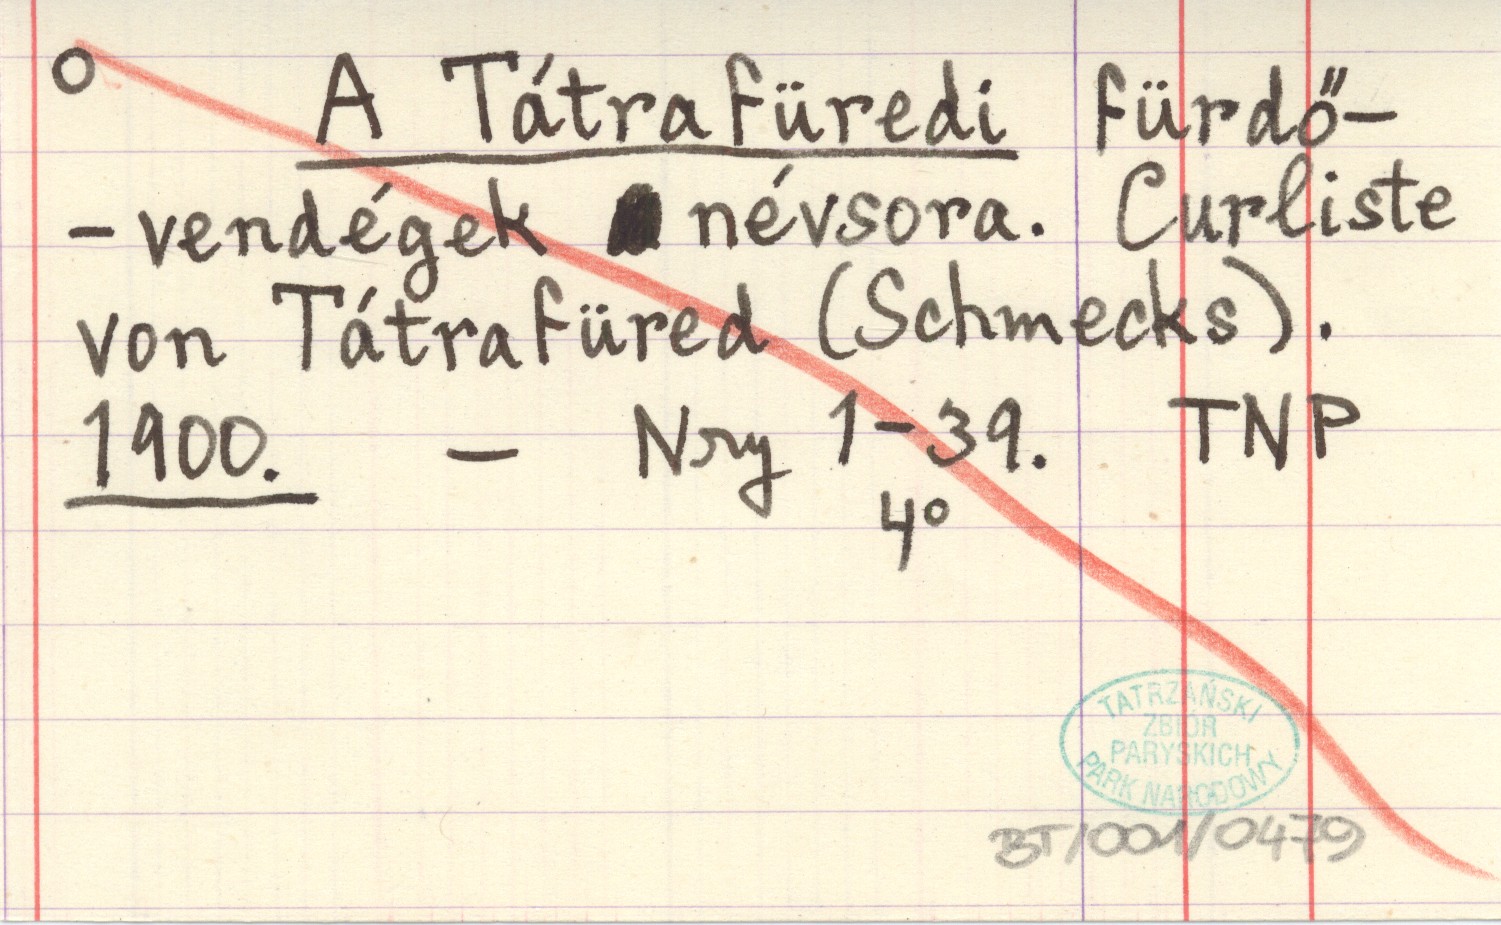 O A Tátrafüredi fürdő-
-vendégek névsora. Curliste
von Tátrafüred (Schmecks).
1900. — Nry 1-39. TNP
4°
TATRZAŃSKI
ZBIÓR
PARYSKICH
PARK NARODOWY
BT/001/0479